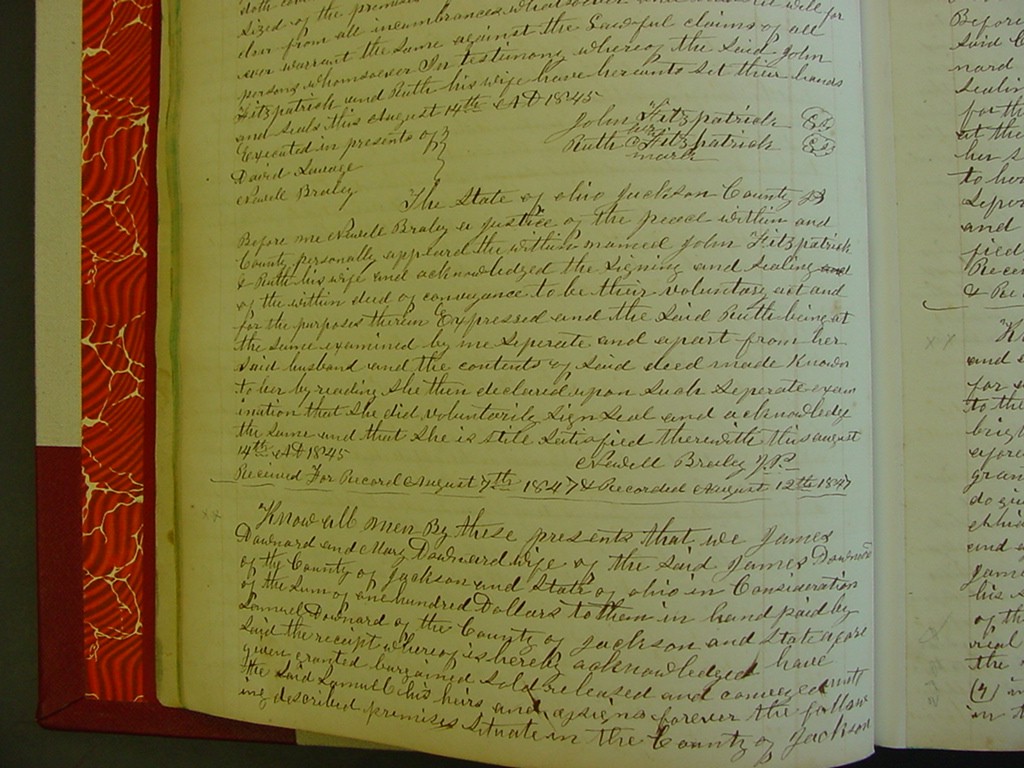 doth
sized of the premises whatsoever and will for
clear from all incumbrances whatsoever
ever warrant the same against the Lawful claims of all
persons whomsoever In testimony whereof the said John
Fitzpatrick and Ruth his wife have hereunto set their hands
and seals this August 14th AD 1845
Executed in presents of } John Fitzpatrick
David Savage } Ruth her Fitzpatrick
Newell Braley mark
The State of ohio Jackson County SS
Before me Newell Braley a justice of the peace within and
County personally appeard the within named John Fitzpatrick
& Ruth his wife and acknowledged the signing and sealing and
of the within deed of conveyance to be their voluntary act and
for the purposes therein Expressed and the said Ruth being at
the same examined by me seperate and apart from her
said husband and the contents of said deed made Known
to her by reading she then declared upon such seperate exam
ination that she did voluntarily sign seal and acknowledge
the same and that she is still satisfied therewith this august
14th AD 1845 Newell Braley J.P.
Received For Record August 7th 1847 & Recorded August 12th 1847
xx
Know all men By these presents that we James
Downard and Mary Downard wife of the said James Downard
of the County of Jackson and State of ohio in Consideration
of the sum of one hundred Dollars to them in hand paid by
Samuel Downard of the County of Jackson and State afore
said the receipt whereof is hereby acknowledged have
given granted bargained sold released and conveyed unto
the said Samuel his heirs and assigns forever the follow
ing described premises situate in the County of Jackson
Before
said
nard
sealin
for th
at the
her s
to her
seper
and
fied
Recei
& Re
xx
and
for
to the
afore
gran
do gi
and
Jame
his
of th
real
the
(4) in
in t